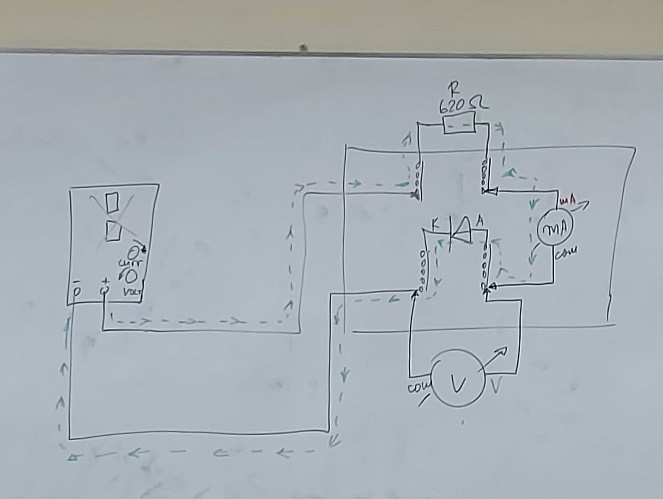 R
620Ω
mA
mA
com
K A
curr
Volt
- +
com V V